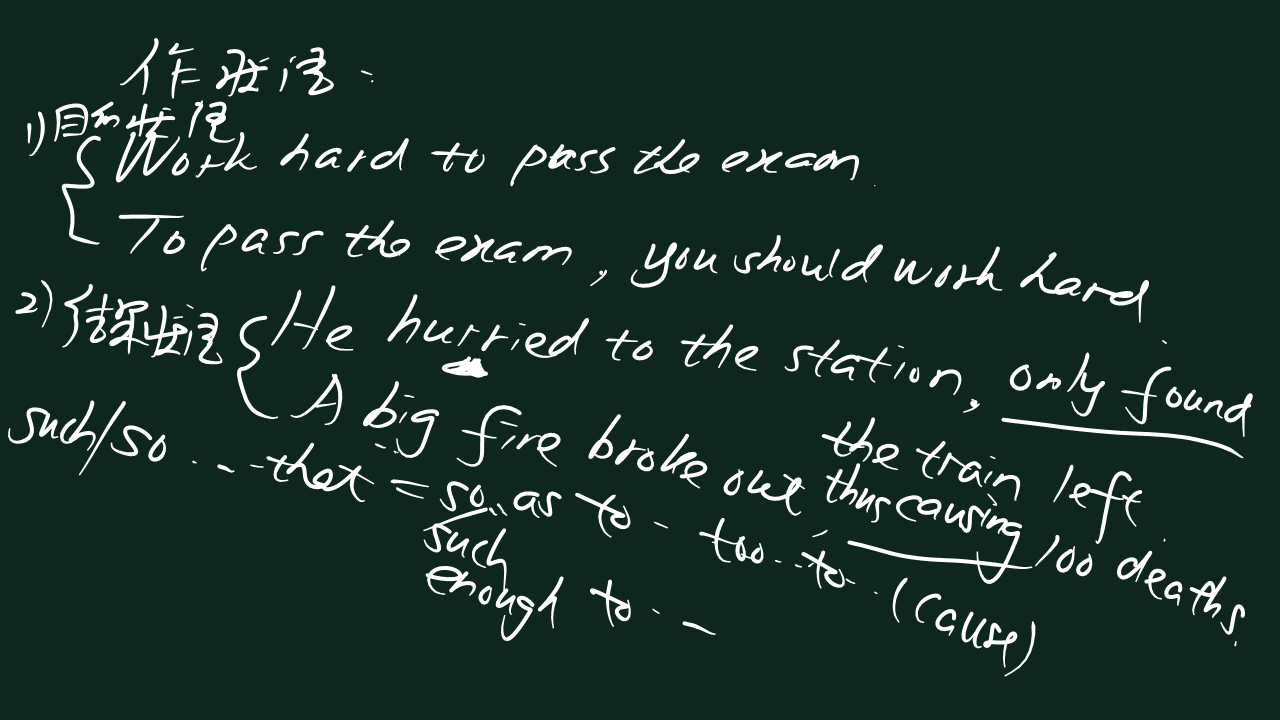 作状语
1)目的状语
Work hard to pass the exam.
To pass the exam, you should work hard
2)结果状语
He hurried to the station, only found
the train left
A big fire broke out, thus causing 100 deaths.
(cause)
such/so...that = so..as to.. too...to..
such
enough to..